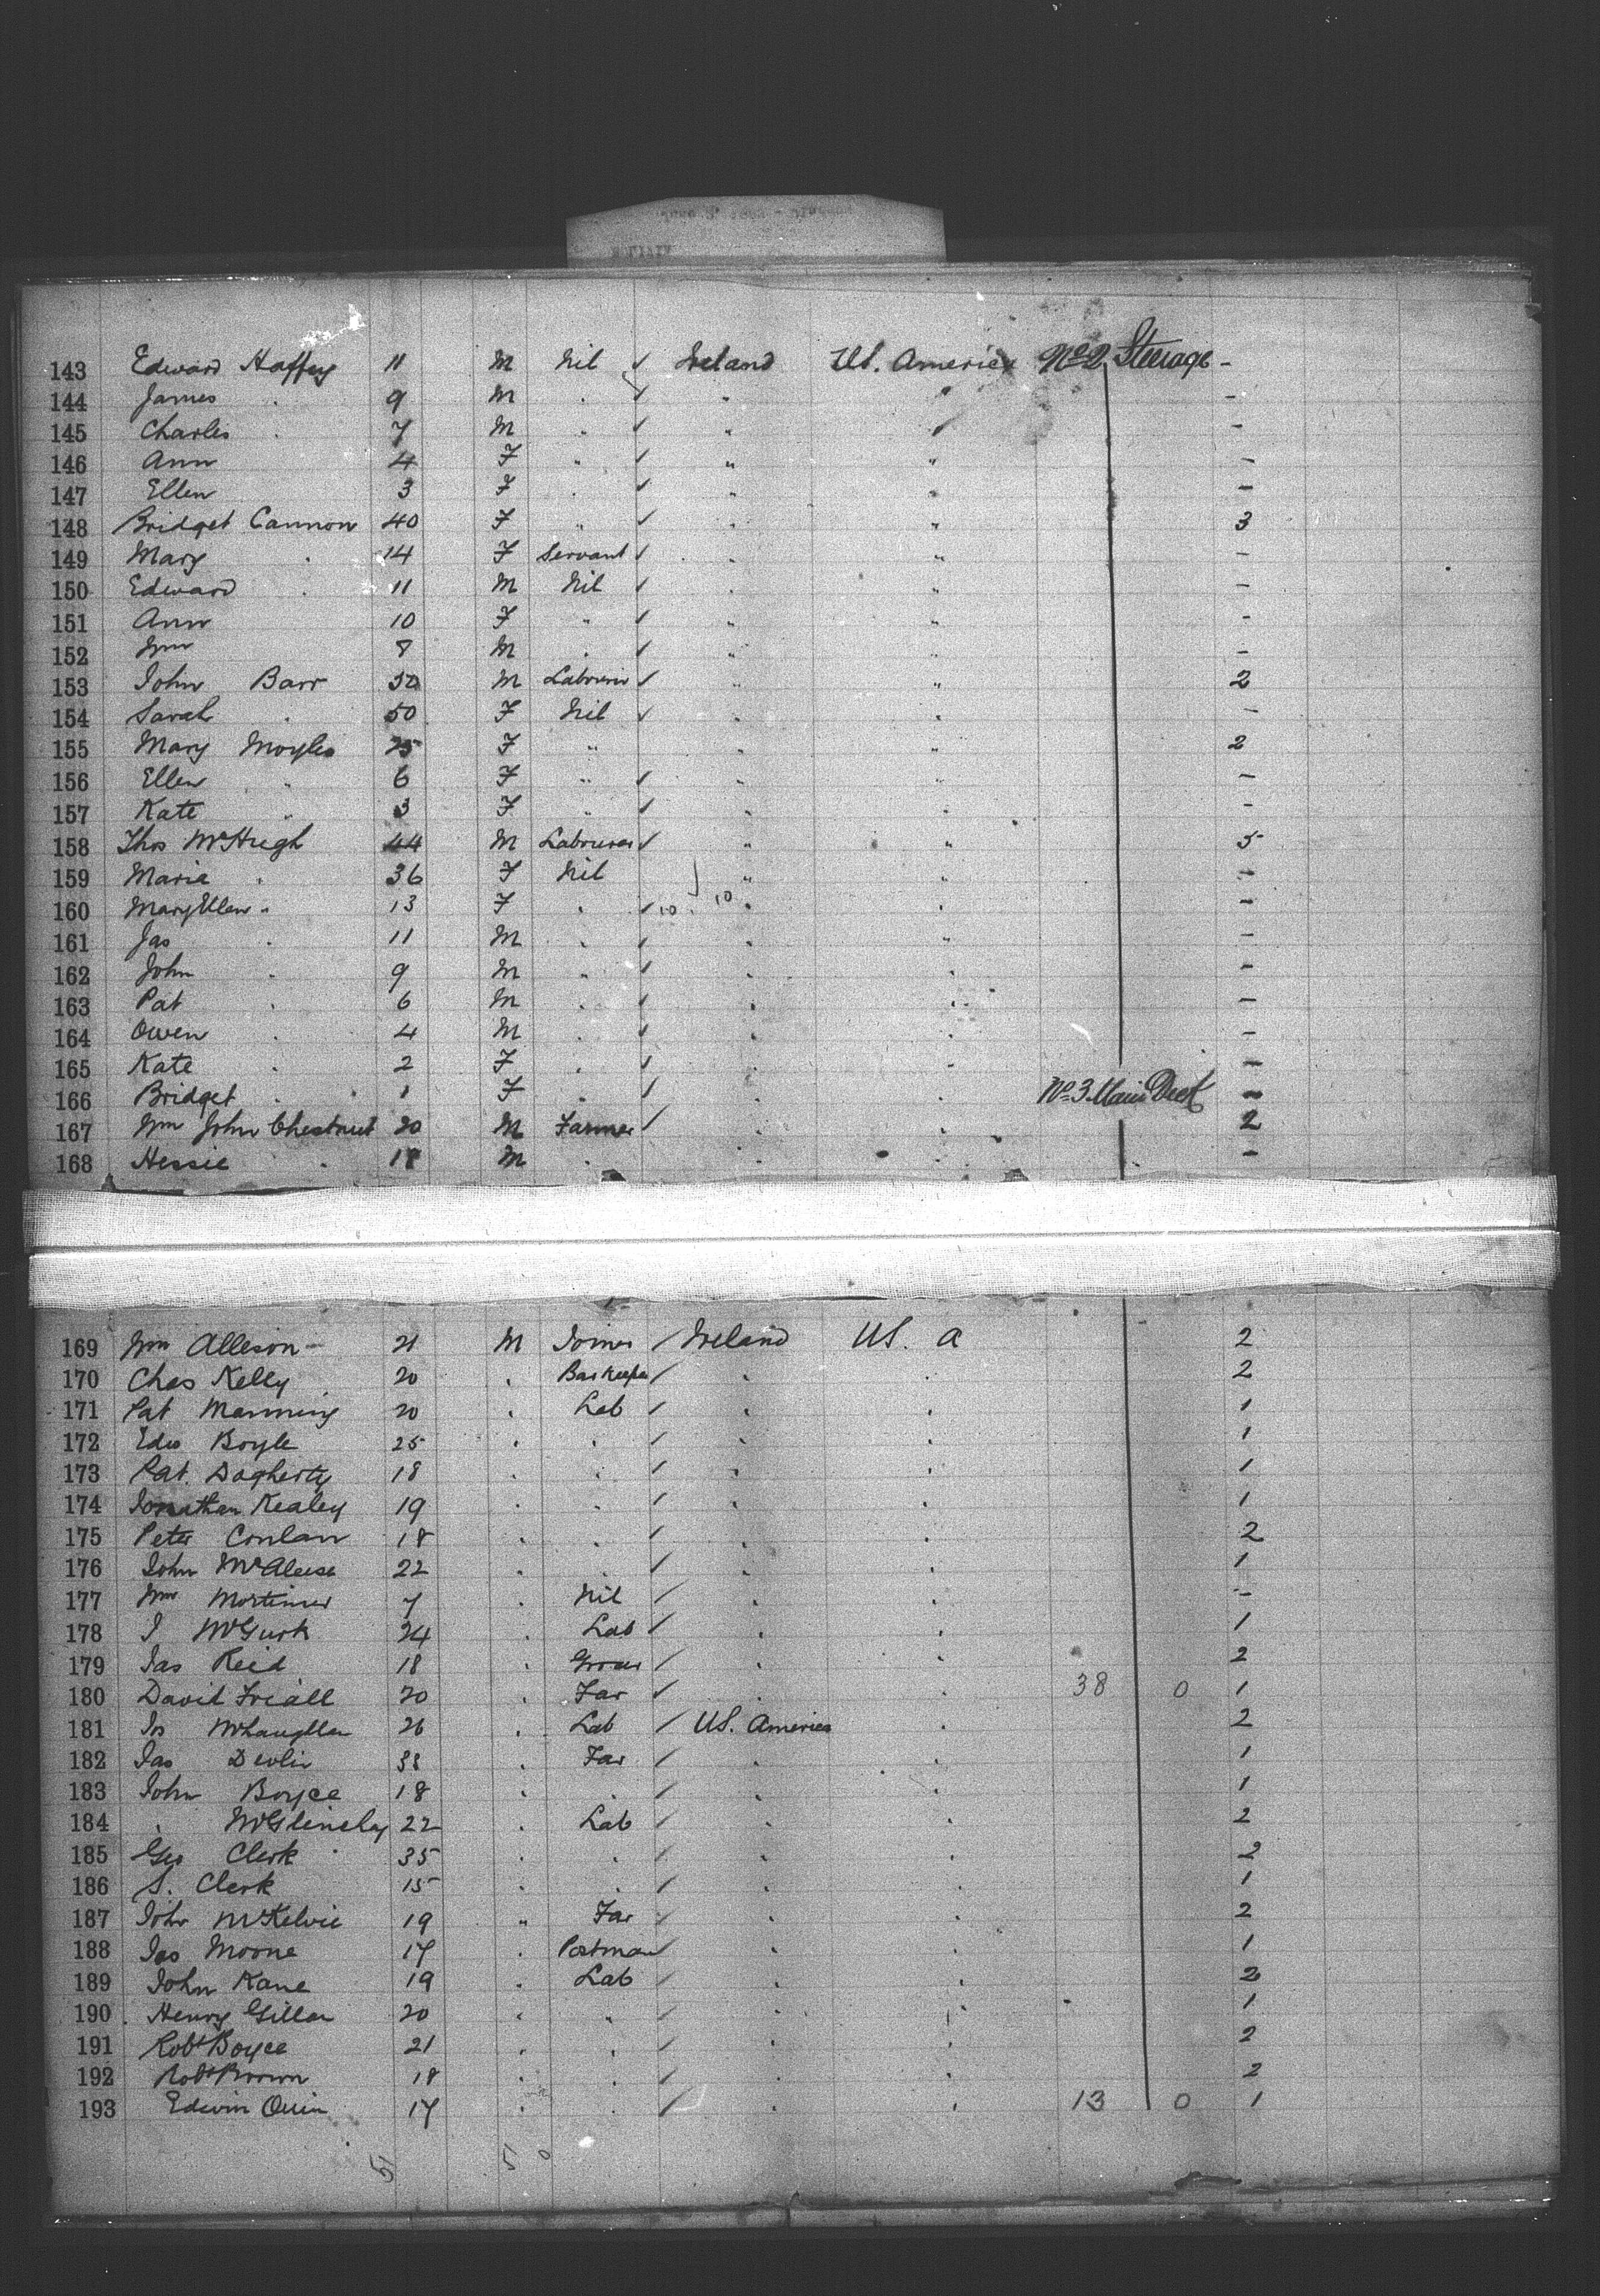 143 Edward Haffey 11 M Nil ✓ Ireland U.S. America No 2 Steerage -
144 James . 9 M . ✓ " " -
145 Charles . 7 M " ✓ " " -
146 Ann 4 F " ✓ " " -
147 Ellen 3 F . ✓ " " -
148 Bridget Cannon 40 F " ✓ " " 3
149 Mary . 14 F Servant ✓ . " -
150 Edward . 11 M Nil ✓ . " -
151 Ann 10 F " ✓ " " -
152 Wm 8 M . ✓ " " -
153 John Barr 50 M Labourer ✓ " " 2
154 Sarah . 50 F Nil ✓ " " -
155 Mary Moyles 25 F " " " 2
156 Ellen " 6 F " ✓ " " -
157 Kate " 3 F " ✓ " . -
158 Thos McHugh 44 M Labourer ✓ " " 5
159 Maria . 36 F Nil " " -
160 Mary Ellen " 13 F . ✓ 10 . 10 " . -
161 Jas . 11 M . ✓ . " -
162 John . 9 M . ✓ . . -
163 Pat . 6 M . ✓ . . -
164 Owen . 4 M . ✓ . . -
165 Kate . 2 F . ✓ . . -
166 Bridget . 1 F . ✓ . . No 3 Main Deck -
167 Wm John Chestnut 20 M Farmer ✓ . . 2
168 Hessie . 18 M . . . -
169 Wm Allison 21 M Joiner / Ireland U.S. A 2
170 Chas Kelly 20 . Barkeeper / . . 2
171 Pat Manning 20 . Lab / . . 1
172 Edw Boyle 25 . . / . . 1
173 Pat. Dogherty 18 . . / . . 1
174 Jonathan Kealey 19 . . / . . 1
175 Peter Conlan 18 . . / . . 2
176 John McAleese 22 . . / . . 1
177 Wm Mortimer 7 . Nil / . . -
178 J McGurk 24 . Lab / . . 1
179 Jas Reid 18 . Grocer / . . 2
180 David Friall 20 . Far ✓ . . 38 0 1
181 Jos McLaughlin 26 . Lab / U.S. America . 2
182 Jas Devlin 38 . Far / . . 1
183 John Boyce 18 . . / . . 1
184 . McGlinchy 22 . Lab / . . 2
185 Geo Clerk 35 . . / . . 2
186 S. Clerk 15 . . / . . 1
187 John McKelvie 19 " Far / . . 2
188 Jas Moone 17 . Postman / . . 1
189 John Kane 19 . Lab / . . 2
190 Henry Gillan 20 . " / . . 1
191 Robt Boyce 21 . . / . . 2
192 Robt Brown 18 . . / . . 2
193 Edwin Quin 17 . . / . . 13 0 1
51 50